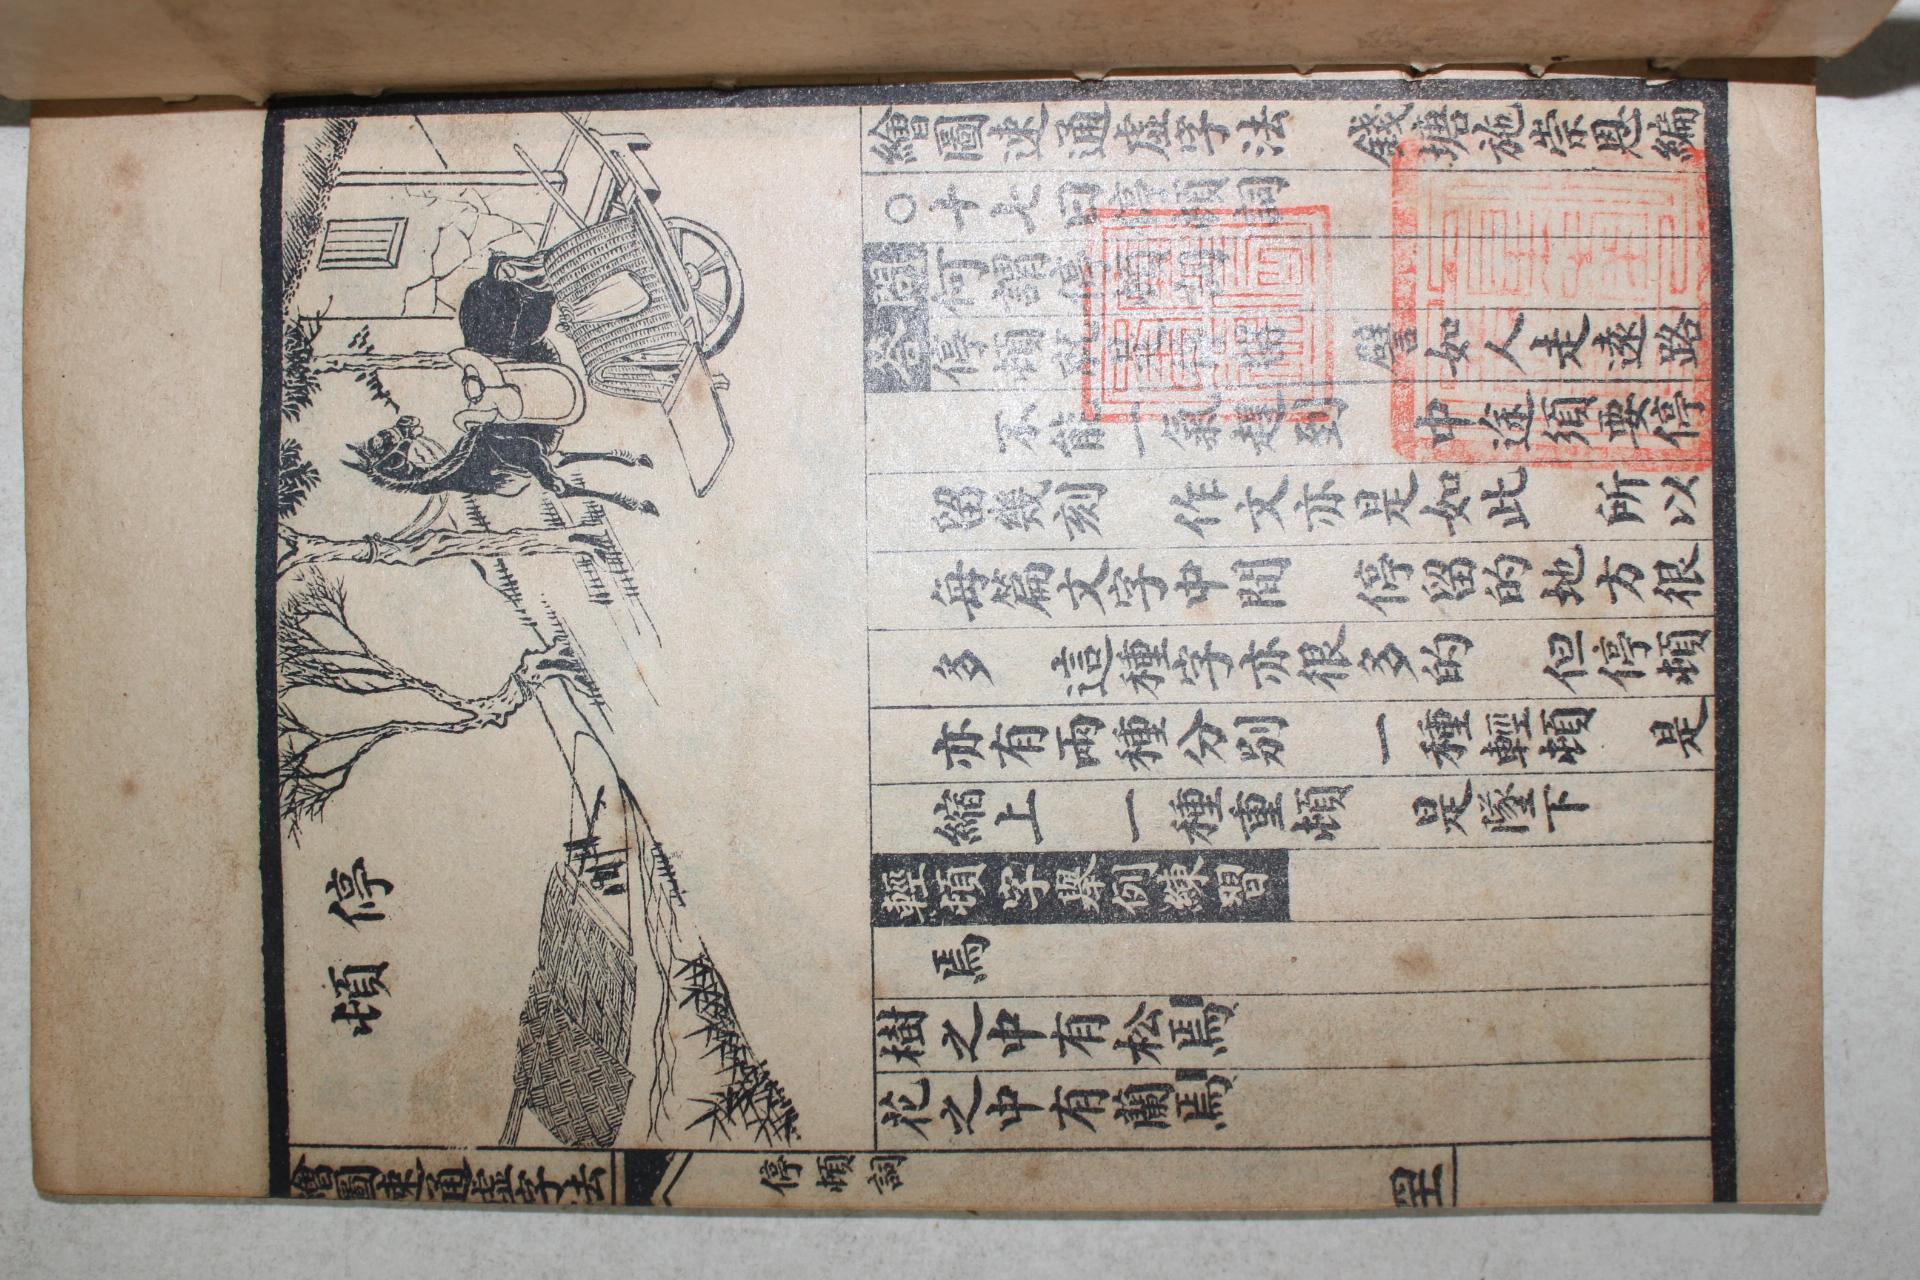 繪圖速通虛字法 錢塘施崇恩編
○十七曰停頓詞
問 何謂停頓
答 停頓 譬如人走遠路
不能一氣趕到 中途須要停
留幾刻 作文亦是如此 所以
每篇文字中間 停留的地方很
多 這種字亦很多的 但停頓
亦有兩種分別 一種輕頓 是
縮上 一種重頓 是墜下
輕頓字舉例練習
焉
樹之中有松焉
花之中有蘭焉
停頓
繪圖速通虛字法
停頓詞